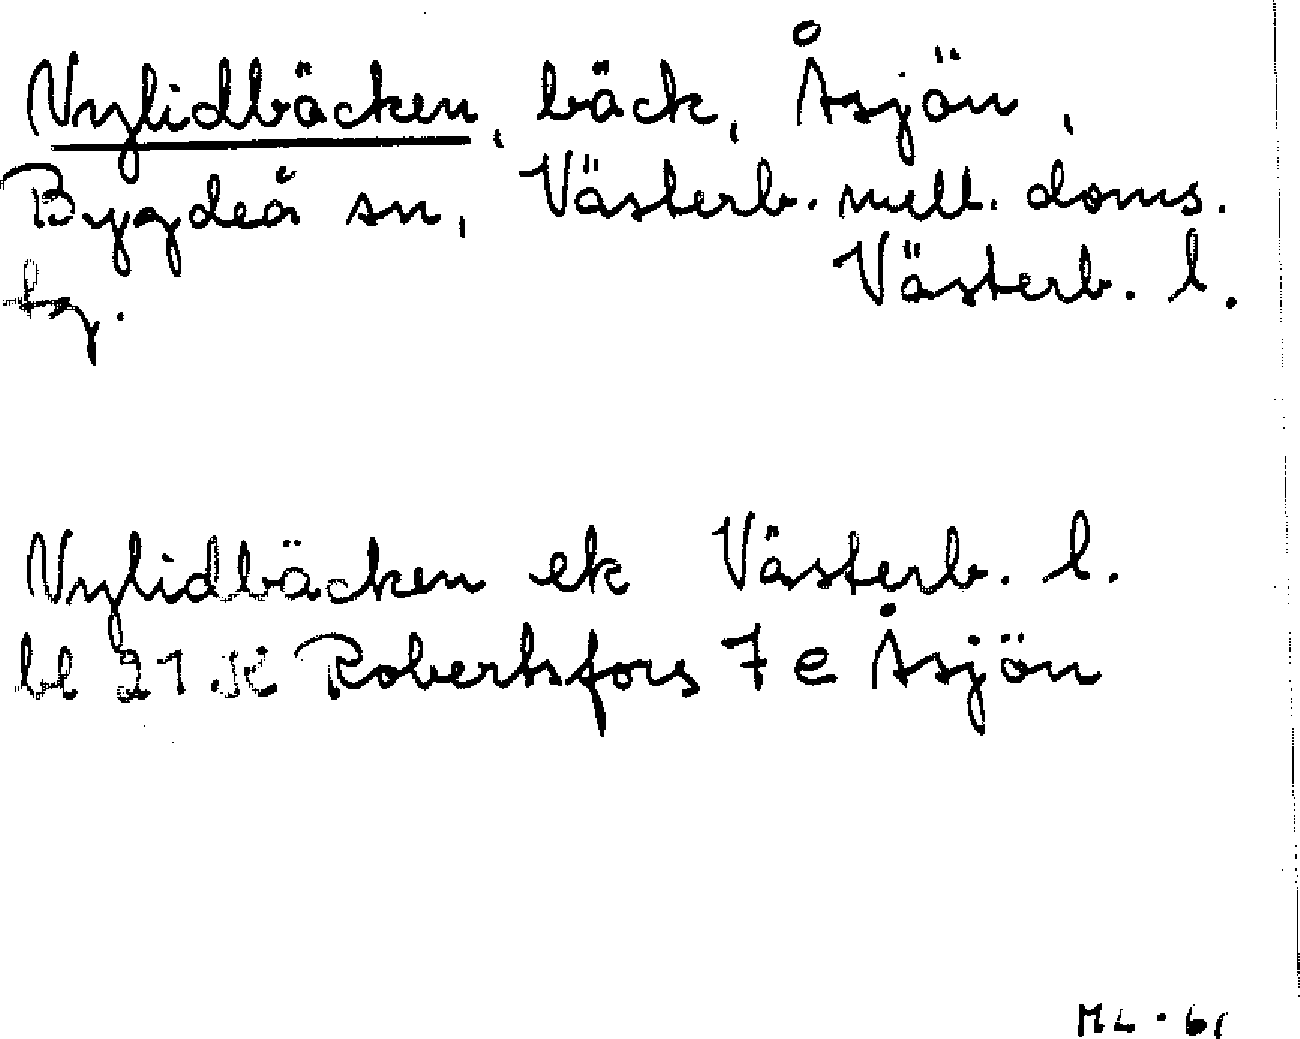 Nylidbäcken, bäck, Åsjön,
Bygdeå sn, Västerb. mell. doms.
tg. Västerb. l.
Nylidbäcken ek Västerb. l.
bl 21 K Robertsfors 7 e Åsjön
ML - 61